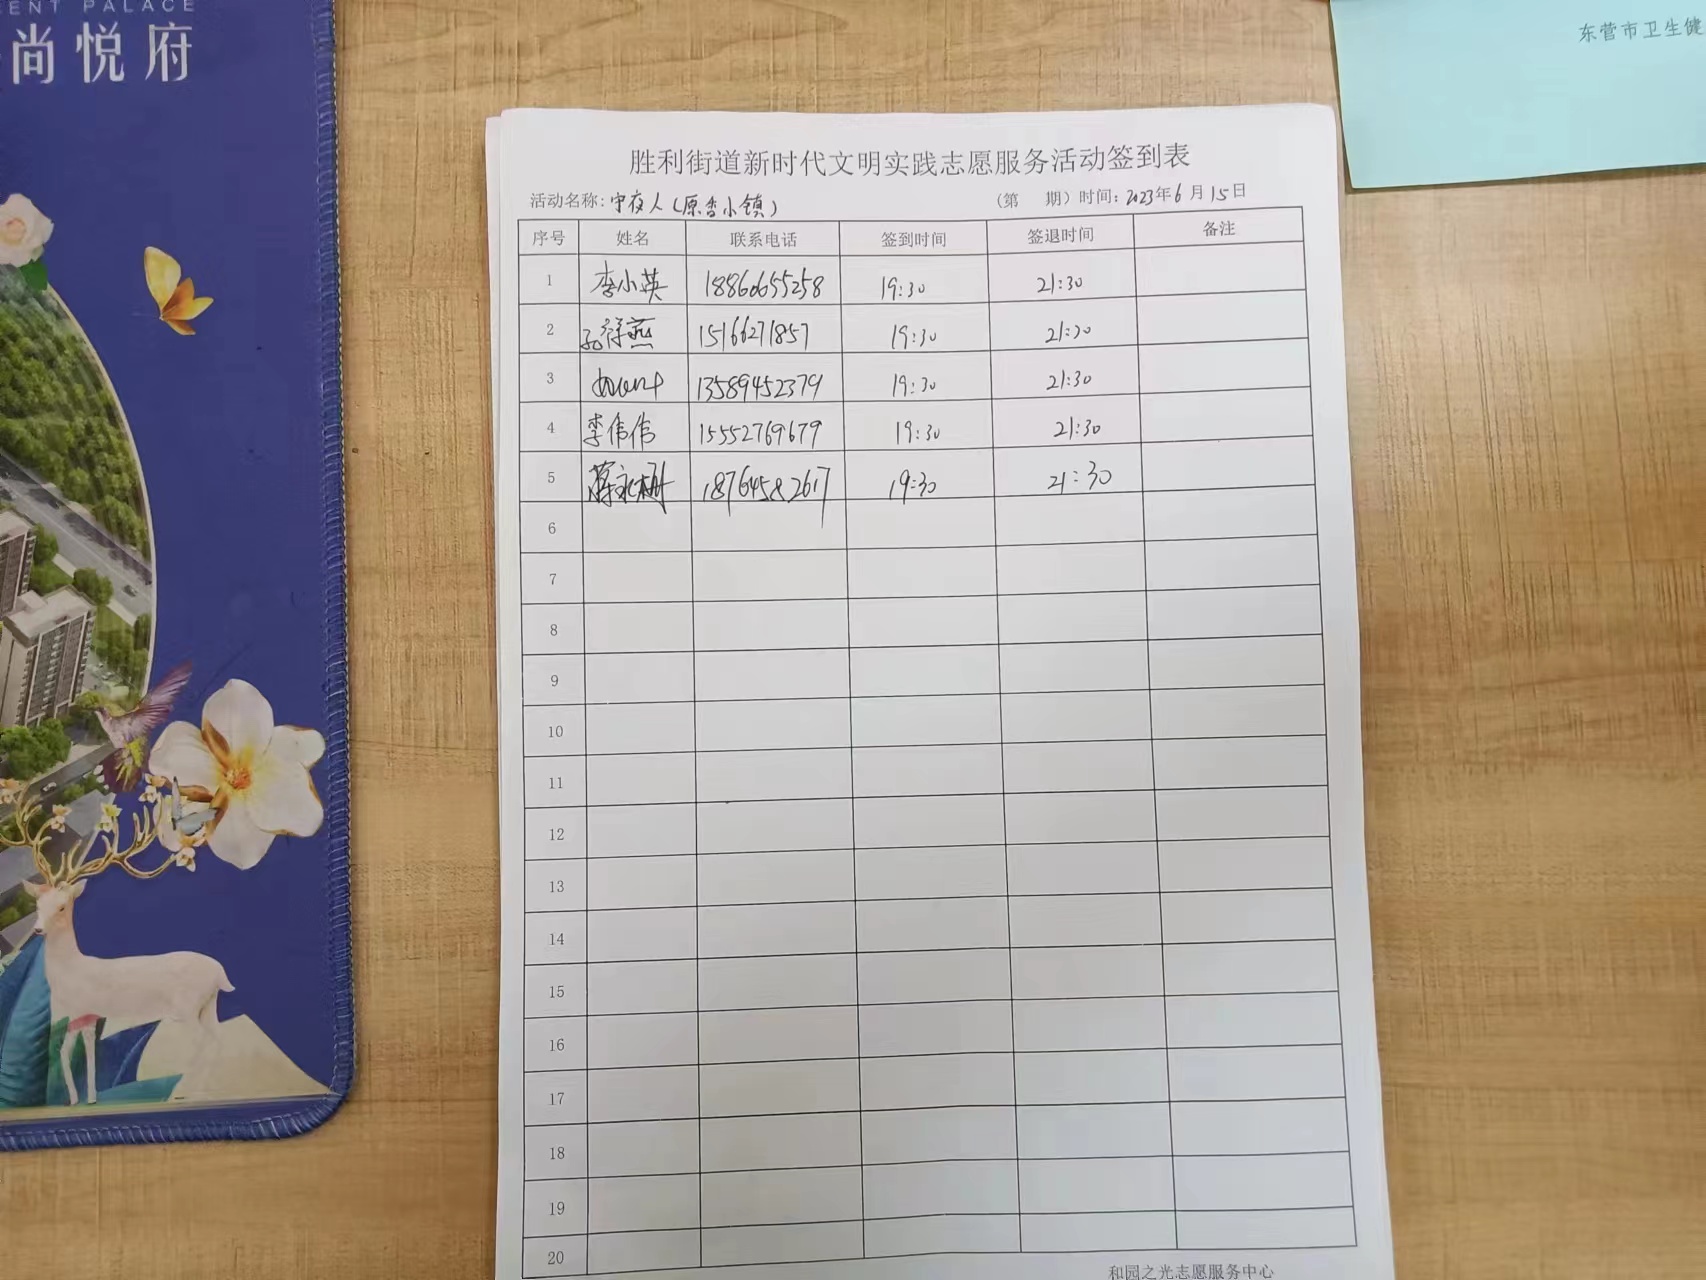 ENT PALACE
尚悦府
东营市卫生健
胜利街道新时代文明实践志愿服务活动签到表
活动名称:守夜人(原香小镇) (第 期)时间:2023年6月15日
序号 姓名 联系电话 签到时间 签退时间 备注
1 李小英 18860655258 19:30 21:30
2 孙祥燕 15166271857 19:30 21:30
3 13589452379 19:30 21:30
4 李伟伟 15552769679 19:30 21:30
5 18764582617 19:30 21:30
6
7
8
9
10
11
12
13
14
15
16
17
18
19
20
和园之光志愿服务中心